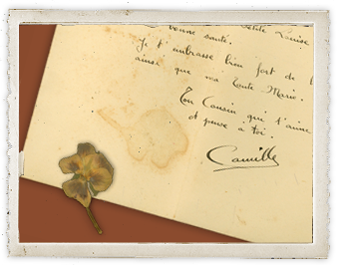 Petite Louise
bonne santé.
Je t'embrasse bien fort de
ainsi que ma Tante Marie.
Ton Cousin qui t'aime
et pense à toi.
Camille